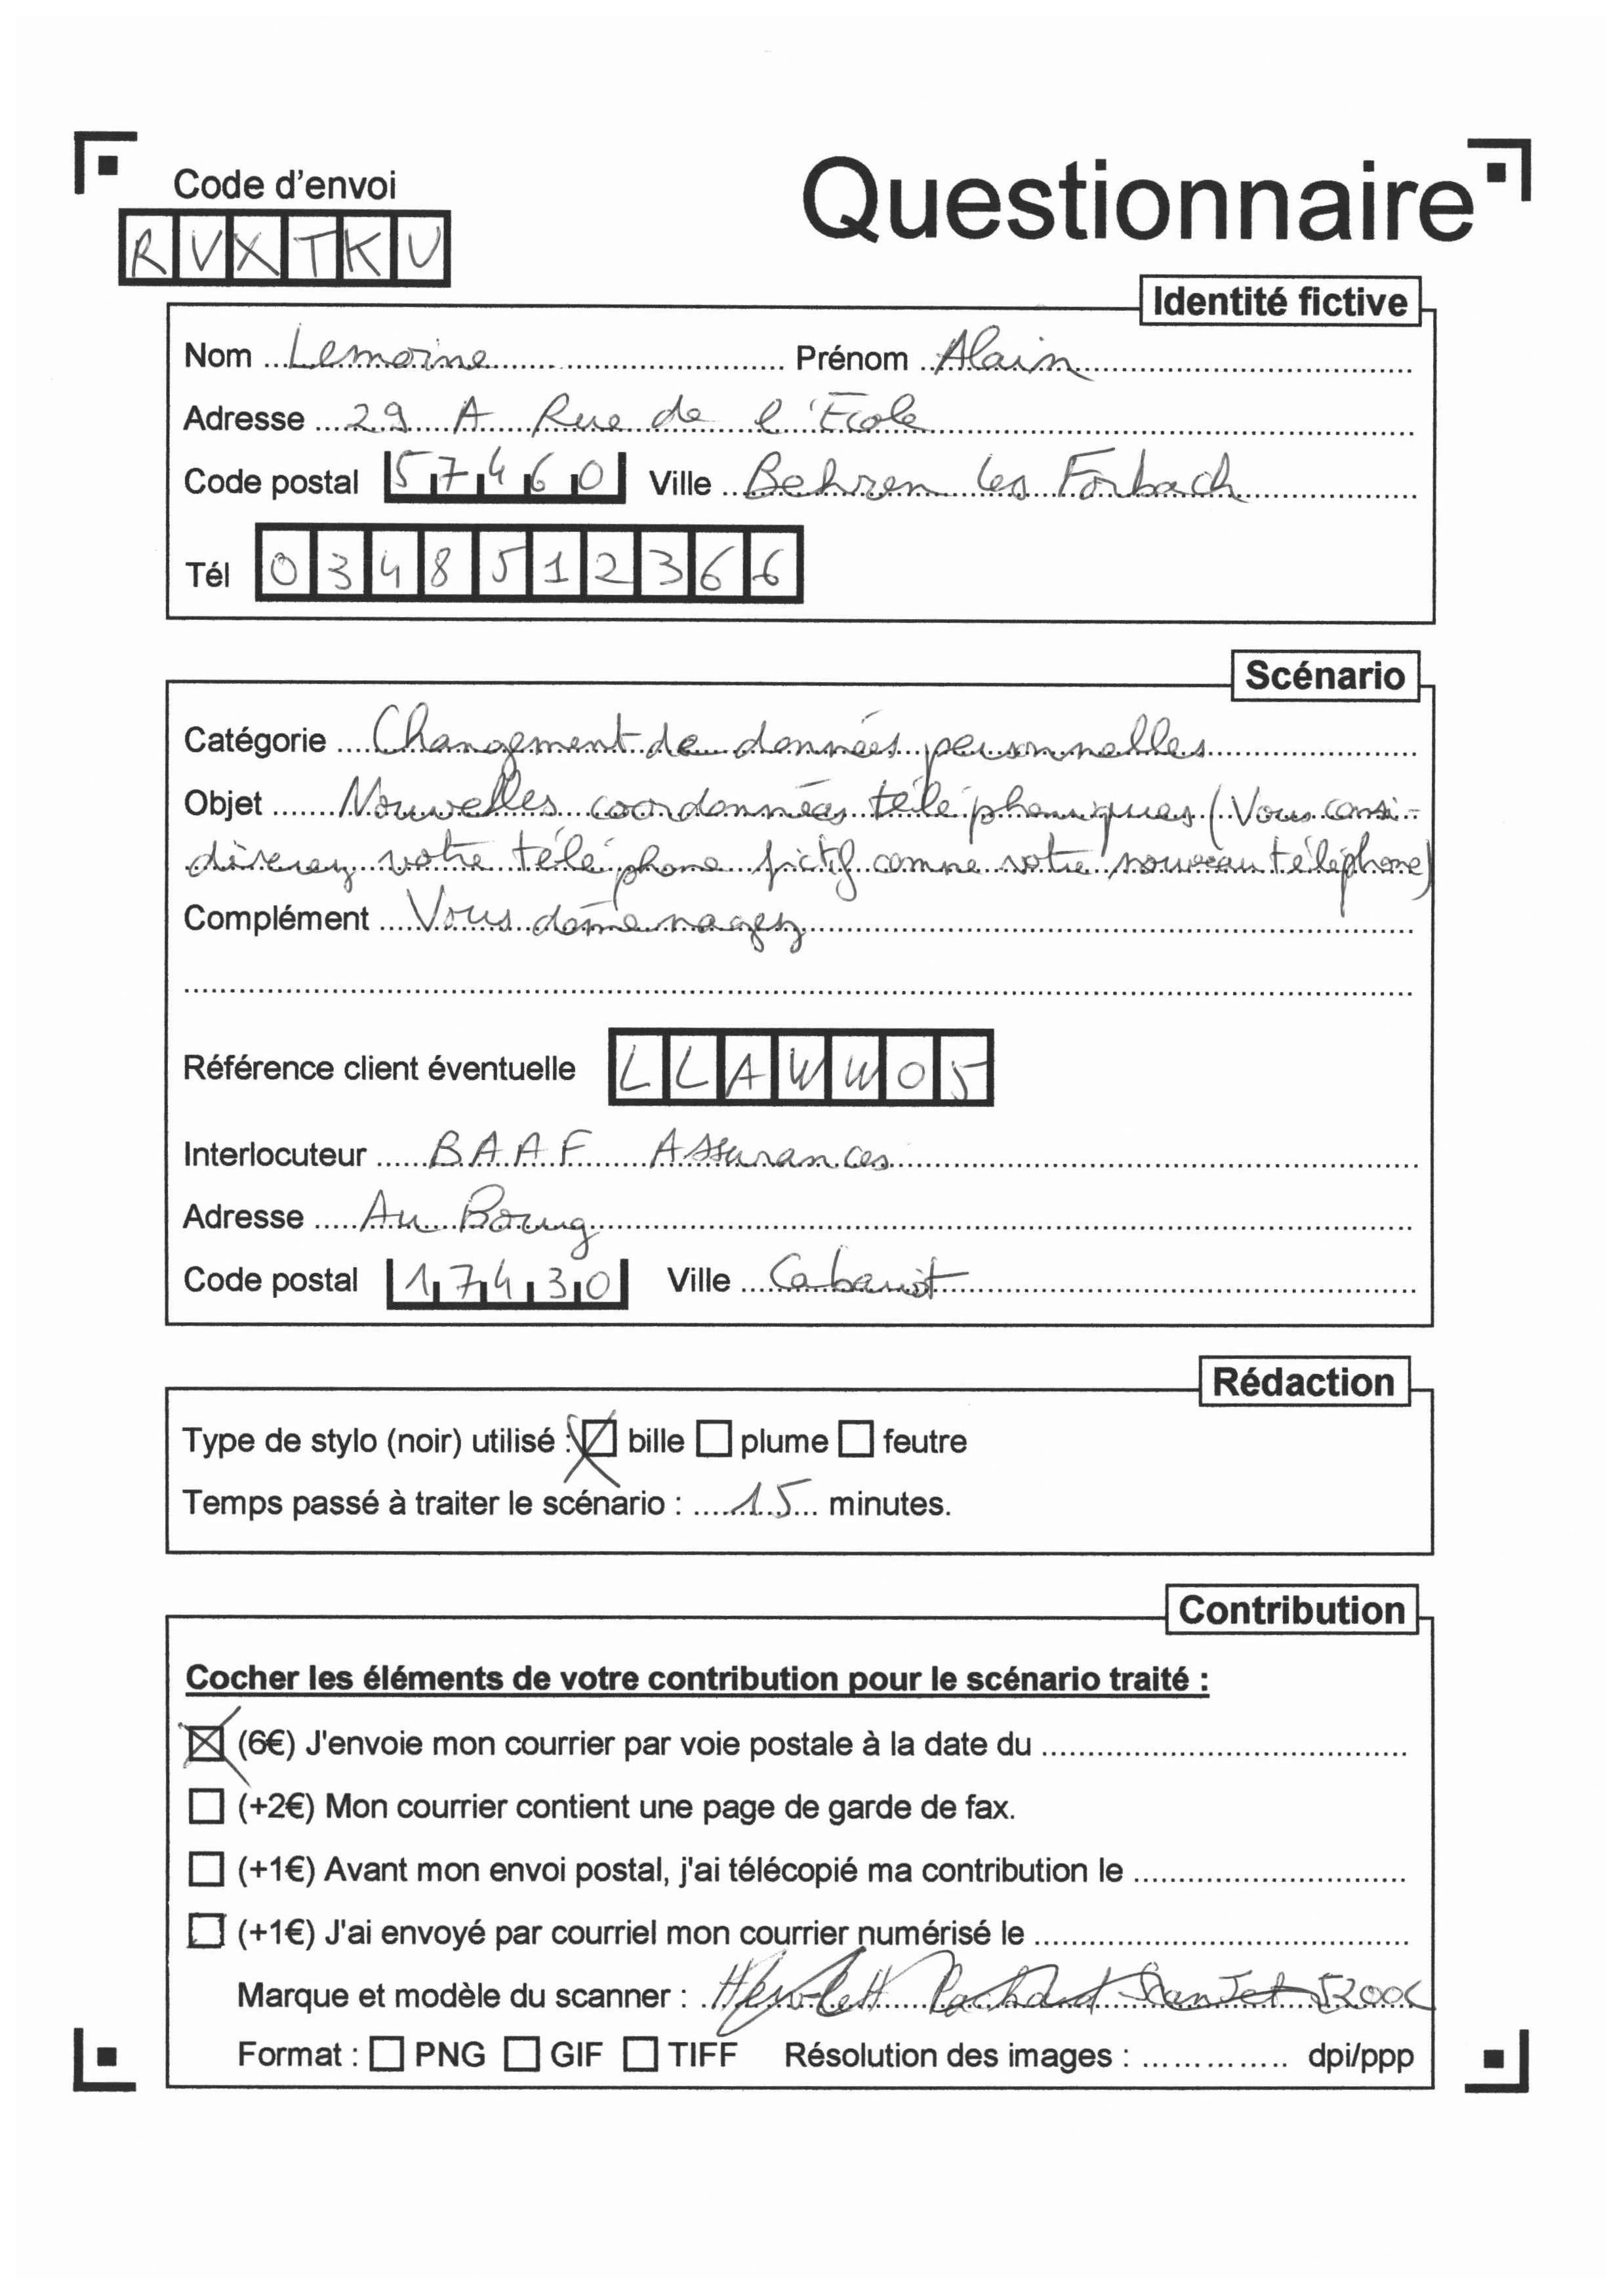 Code d'envoi
Questionnaire
R V X T K U
Identité fictive
Nom Lemoine Prénom Alain
Adresse 29 A Rue de l'Ecole
Code postal 57460 Ville Behren les Forbach
Tél 0348512366
Scénario
Catégorie Changement de données personnelles
Objet Nouvelles coordonnées téléphoniques (Vous consi-
dèrerez votre téléphone fictif comme votre nouveau téléphone)
Complément Vous déménagez
Référence client éventuelle LLAWW05
Interlocuteur BAAF Assurances
Adresse Au Bourg
Code postal 17430 Ville Cabariot
Rédaction
Type de stylo (noir) utilisé : bille plume feutre
Temps passé à traiter le scénario : 15 minutes.
Contribution
Cocher les éléments de votre contribution pour le scénario traité :
(6€) J'envoie mon courrier par voie postale à la date du
(+2€) Mon courrier contient une page de garde de fax.
(+1€) Avant mon envoi postal, j'ai télécopié ma contribution le
(+1€) J'ai envoyé par courriel mon courrier numérisé le
Marque et modèle du scanner : Hewlett Packard ScanJet 5200C
Format : PNG GIF TIFF Résolution des images : dpi/ppp